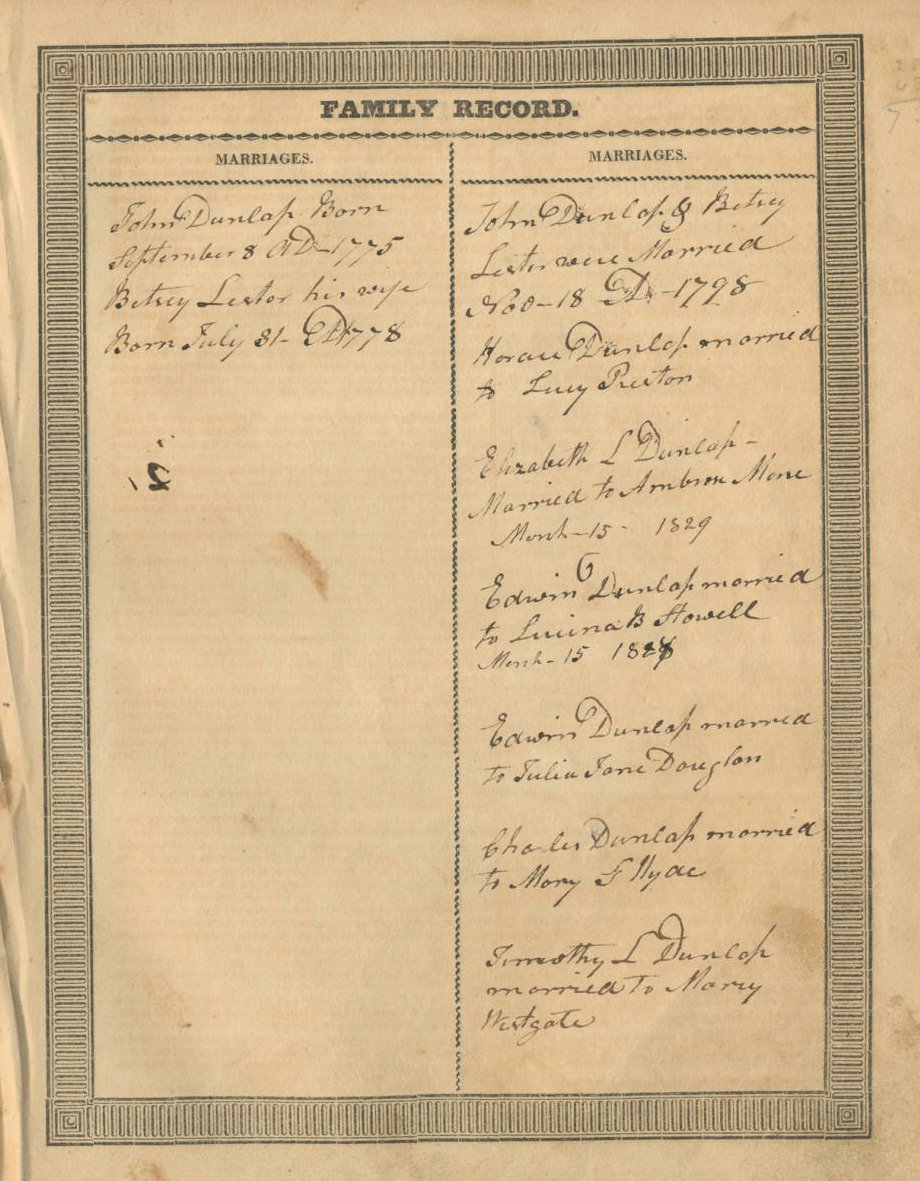 FAMILY RECORD.
MARRIAGES.
John Dunlap Born
September 8 AD-1775
Betsey Lester his wife
Born July 31- AD 1778
MARRIAGES.
John Dunlap & Betsey
Lester were Married
Nov-18 AD-1798
Horace Dunlap married
to Lucy Preston
Elizabeth L Dunlap-
Married to Ambrose
March-15- 1829
Edwin Dunlap married
to Lucina B Howell
March-15
Edwin Dunlap married
to Julia Jane Douglon
Charles Dunlap married
to Mary F Hyde
Timothy L Dunlap
married to Marcy
Westgate